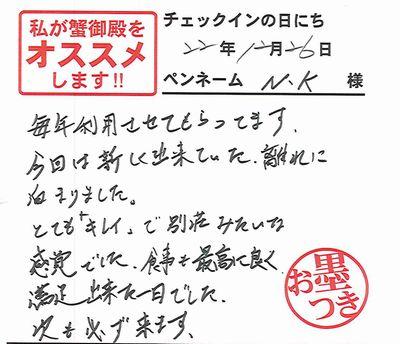 私が蟹御殿を
オススメ
します!!
チェックインの日にち
22年12月26日
ペンネーム N.K 様
毎年利用させてもらってます。
今回は新しく出来ていた、離れに
泊まりました。
とても「キレイ」で別荘みたいな
感覚でした。食事も最高に良く
満足出来た一日でした。
次も必ず来ます。
お墨つき